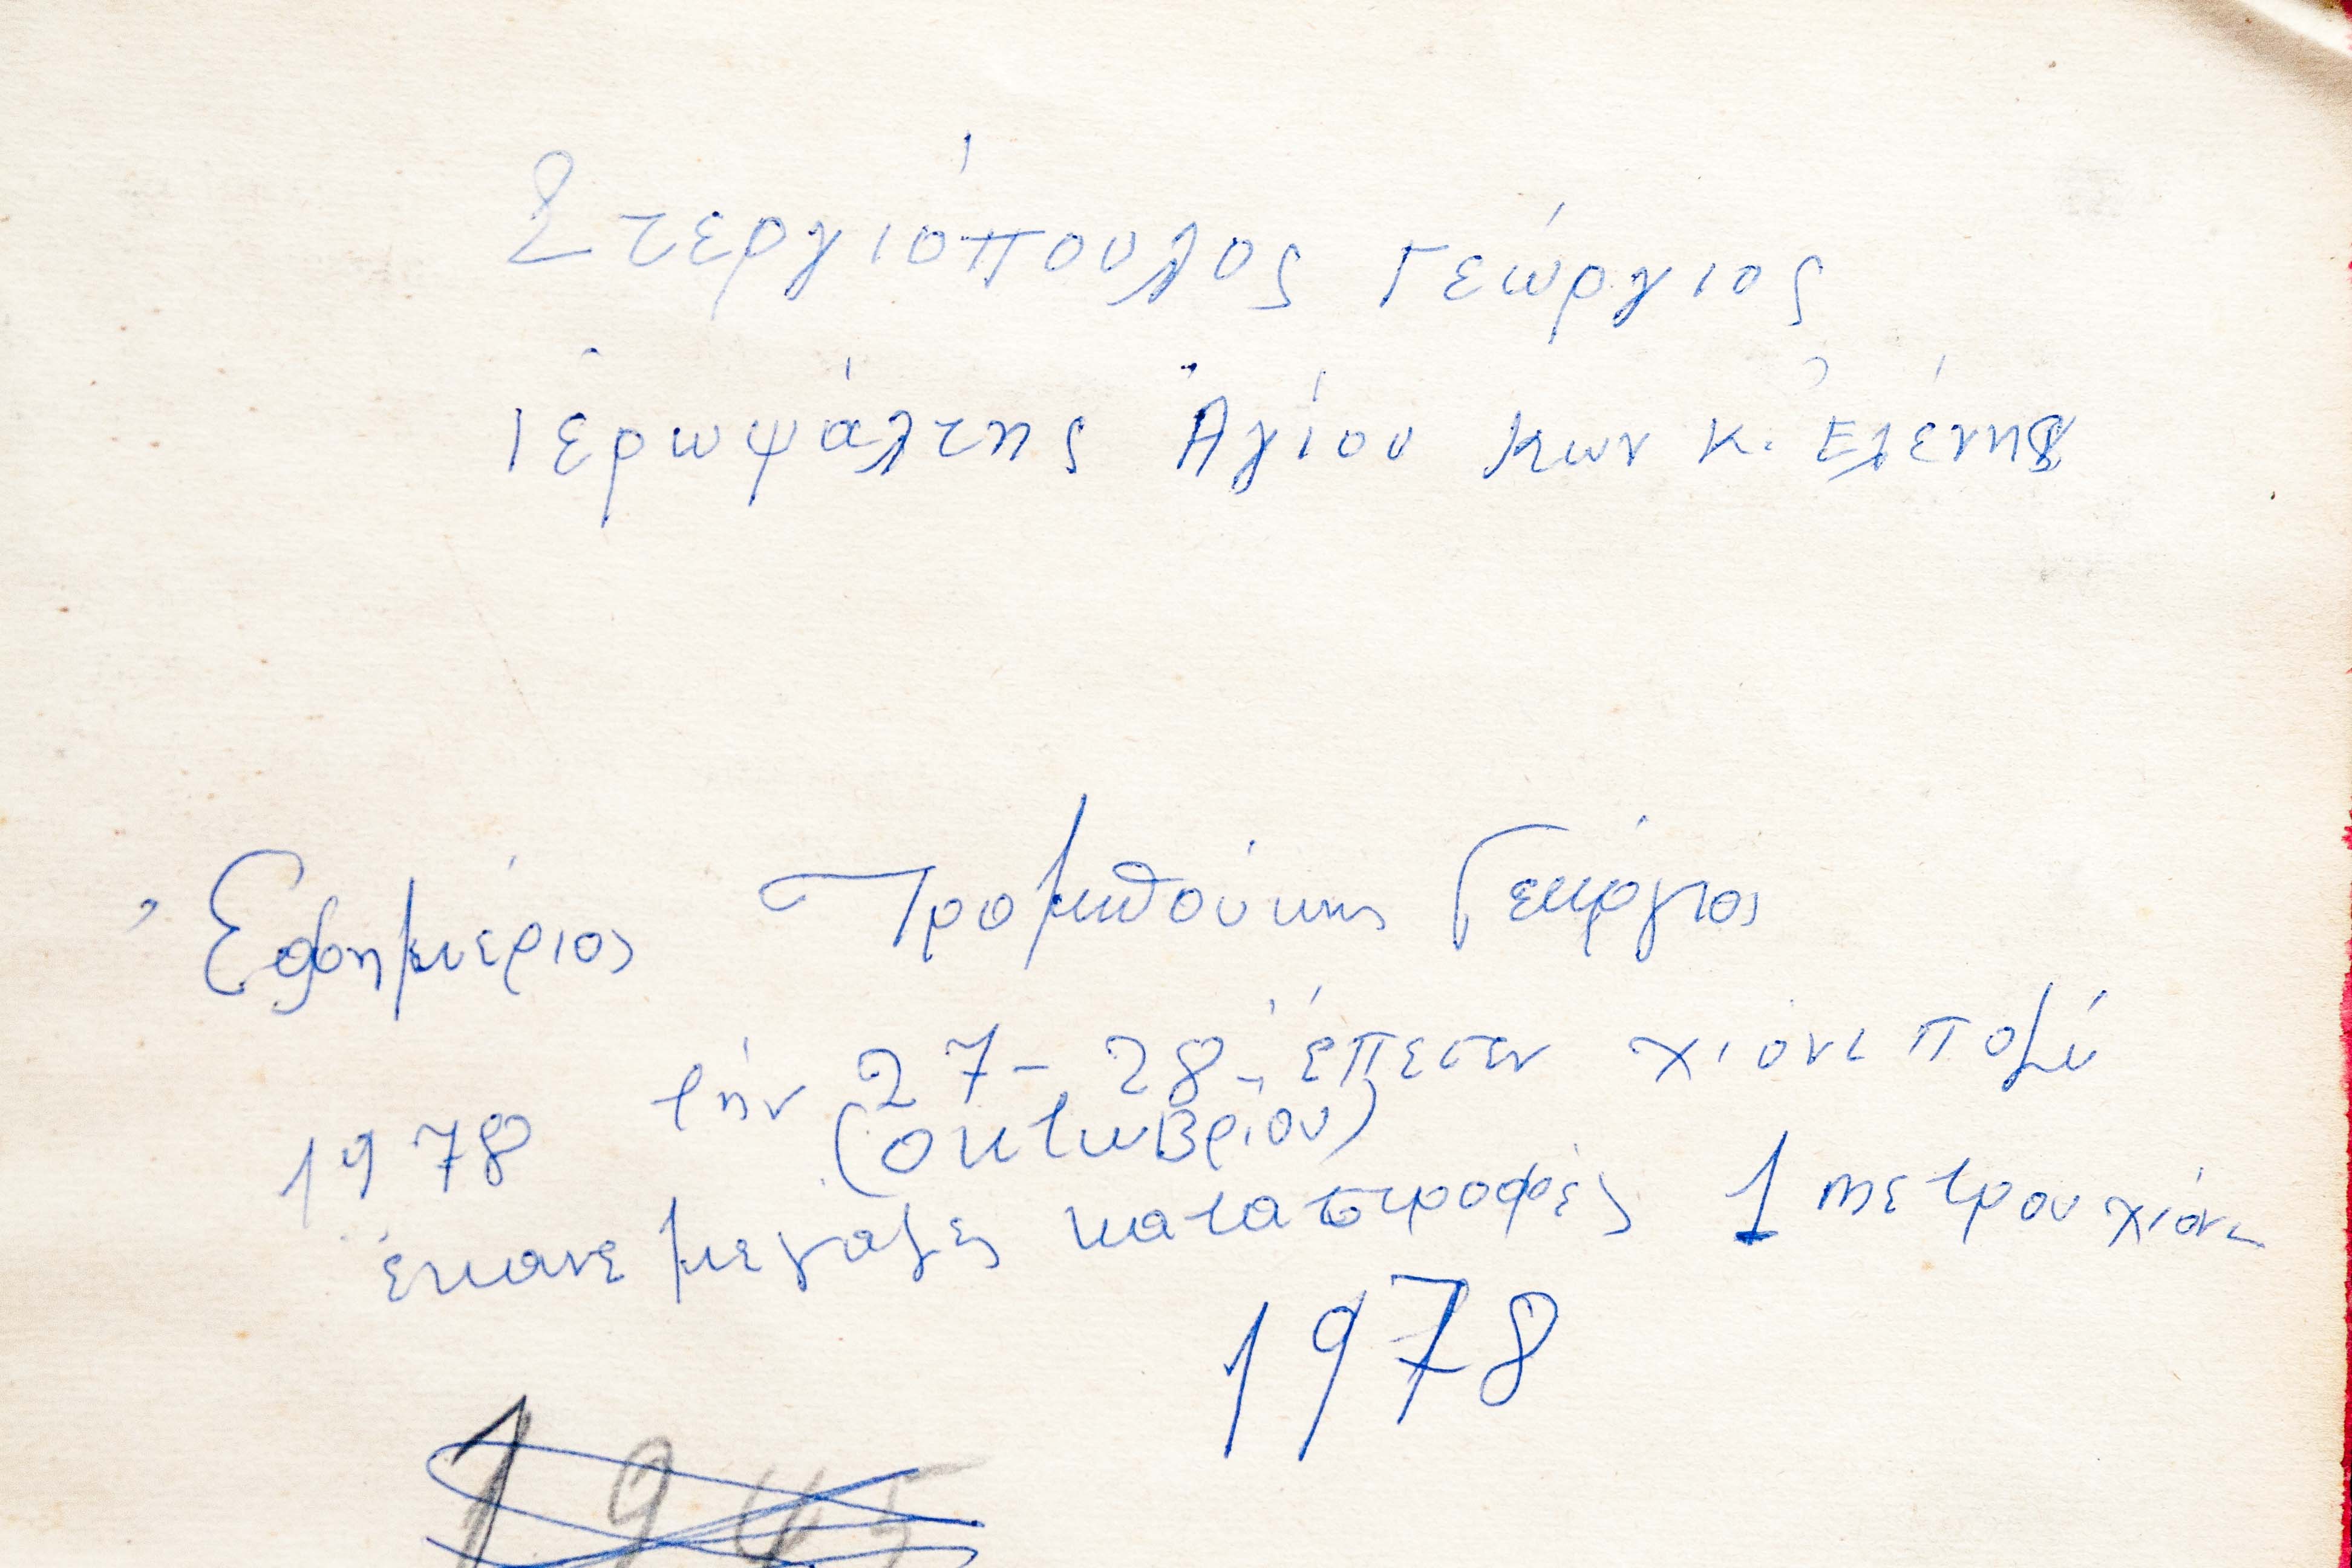 Στεργιόπουλος Γεώργιος
Ἱερωψάλτης Ἁγίου Κων κ. Ἑλένης
Ἐφημέριος Τρομπούκης Γεώργιος
1978 τήν 27-28- ἔπεσεν χιόνι πολύ
(ὀκτωβρίου)
ἔκανε μεγαλες καταστροφές 1 μετρου χιόνι
1978
1945